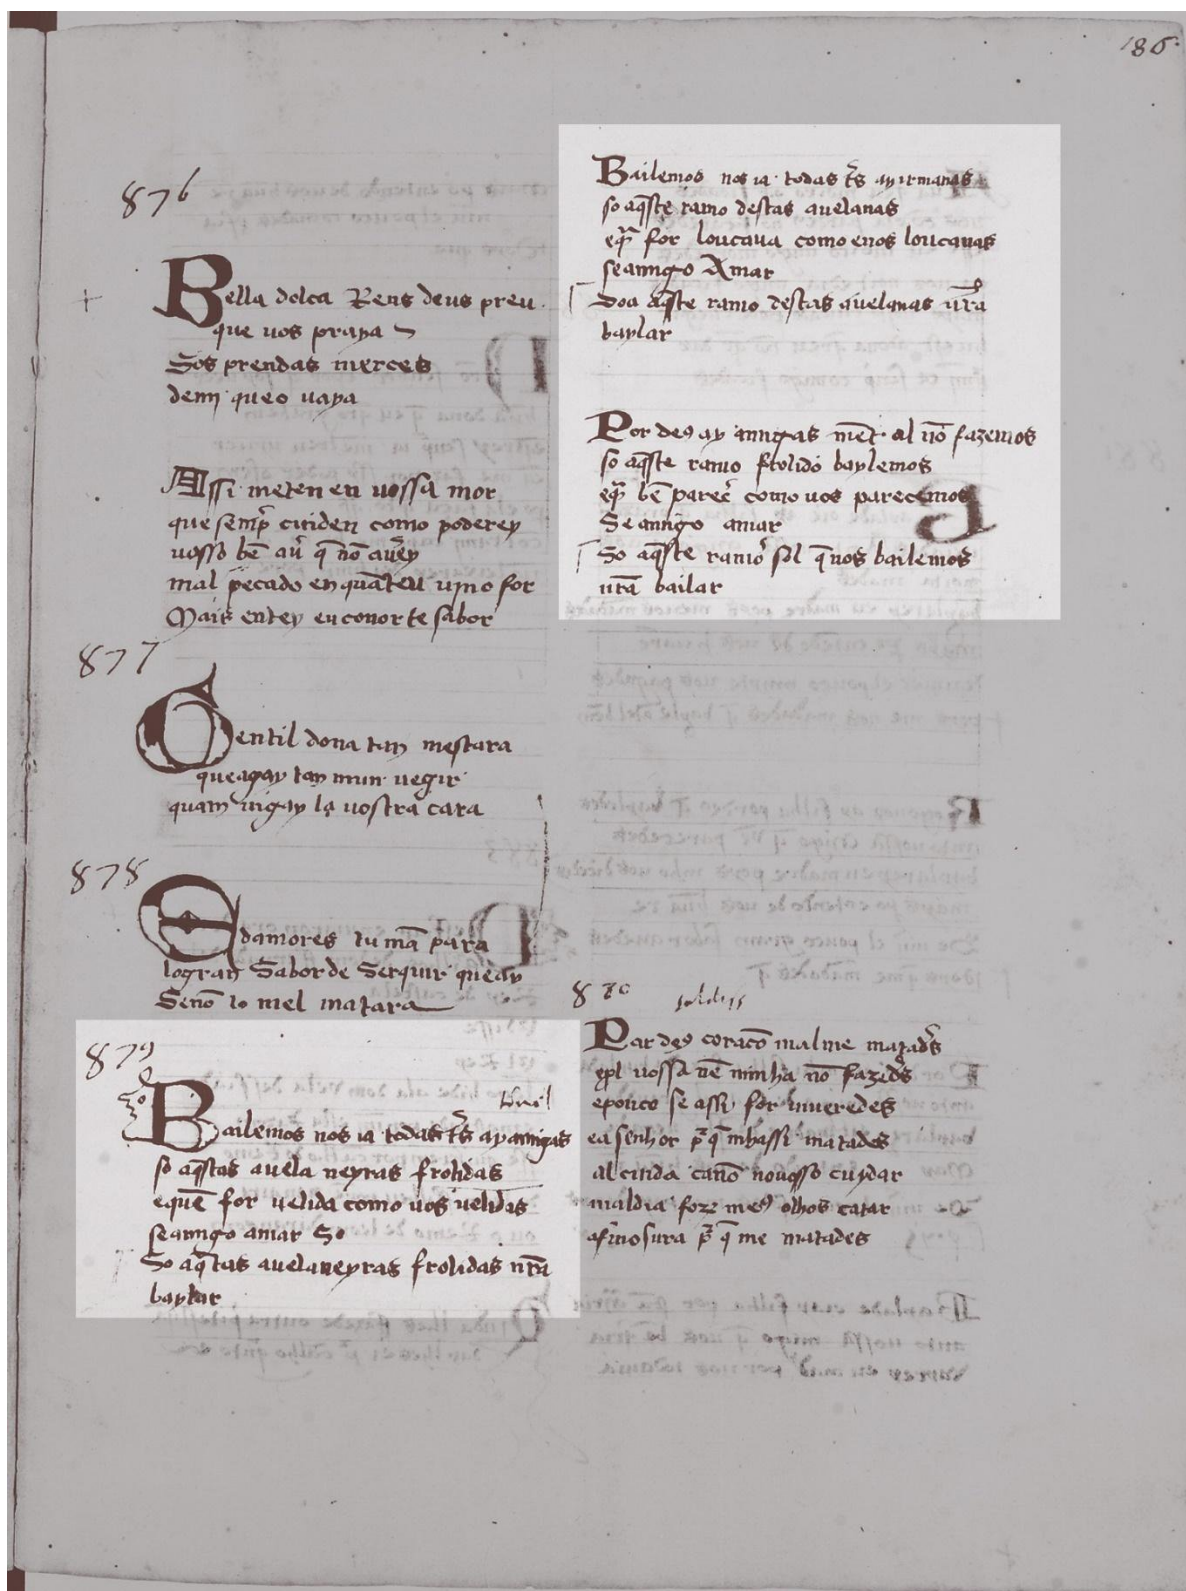 186
876
Bella dolca Rens deus preu
que uos praya
Sos prendas merces
demj queo uaya
Assi meten en uossa mor
que semp̃ cuiden como poderey
uosso bẽ aũ q̃ nõ aũey
mal pecado en quãteu uiuo for
Mais entey en conorte sabor
877
Gentil dona tan mestara
queagay tan mun uegir
quam uigay la uostra cara
878
Edamores tu mã para
logran Sabor de Serquir queay
Senõ lo mel matara
879
Bailemos nos ia todas t̃s ay amigas
so aq̃stas auela neyras frolidas
equẽ for uelida como uos uelidas
seamigo amar So
So aq̃stas auelaneyras frolidas uirã
baylar
Bailemos nos ia todas t̃s ay irmanas
so aq̃ste ramo destas auelanas
eq̃ for loucana como enos loucanas
seamigo Amar
Soa aq̃ste ramo destas auelanas uirã
baylar
Por deꝯ ay amigas mẽt al nõ fazemos
so aq̃ste ramo frolido baylemos
eq̃ bẽ parec̃ como uos parecemos
Se amigo amar
So aq̃ste ramo sol q̃ nos bailemos
uirã bailar
Par deꝯ coracõ malme matad̃s
prol uossa nẽ minha nõ fazed̃s
epouco se assi for uiueredes
ea senhor p̃ q̃ mhassi matades
al cuida canõ nouosso cuydar
maldia foze meꝯ olhos catar
afmosura p̃ q̃ me matades